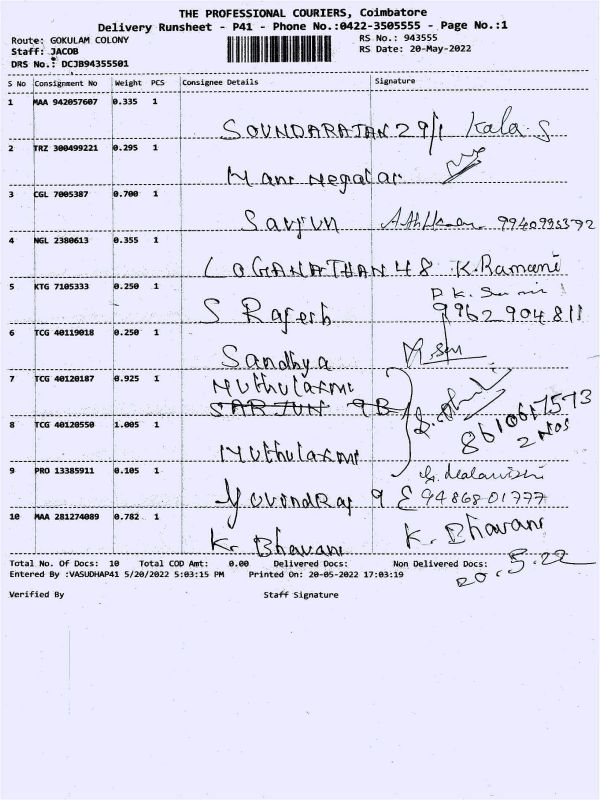 THE PROFESSIONAL COURIERS, Coimbatore
Delivery Runsheet - P41 - Phone No.:0422-3505555 - Page No.:1
Route: GOKULAM COLONY RS No.: 943555
Staff: JACOB RS Date: 20-May-2022
DRS No.: DCJB94355501
S No Consignment No Weight PCS Consignee Details Signature
1 MAA 942057607 0.335 1
SOUNDARAJAN 29/1 Kala.S
2 TRZ 300499221 0.295 1
3 CGL 7005387 0.700 1
Sarjun 9940995392
4 NGL 2380613 0.355 1
LOGANATHAN 48 K.Ramani
5 KTG 7105333 0.250 1
S Rajesh 9962904811
6 TCG 40119018 0.250 1
Sandhya
7 TCG 40120187 0.925 1
Muthulaxmi
SARJUN 9B
8610617573
2 Nos
8 TCG 40120550 1.005 1
Muthulaxmi
9 PRO 13385911 0.105 1
Yovindraj 9 E 9486801777
10 MAA 281274089 0.782 1
K. Bhavani K. Bhavani
Total No. Of Docs: 10 Total COD Amt: 0.00 Delivered Docs: Non Delivered Docs:
20.5.22
Entered By :VASUDHAP41 5/20/2022 5:03:15 PM Printed On: 20-05-2022 17:03:19
Verified By Staff Signature